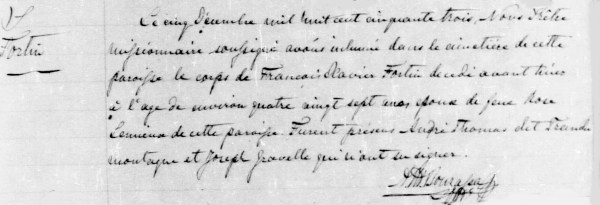 S
Fortin
Le cinq Décembre mil huit cent cinquante trois, Nous Prêtre
missionnaire soussigné avons inhumé dans le cimetière de cette
paroisse le corps de François Xavier Fortin décédé avant hier
à l'age de environ quatre vingt sept ans, epoux de feue Rose
Lemieux de cette paroisse. Furent présens André Thomas dit Tranche
montagne et Joseph Gravelle qui n'ont su signer.
Bourassa Ptre